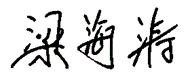 梁海涛